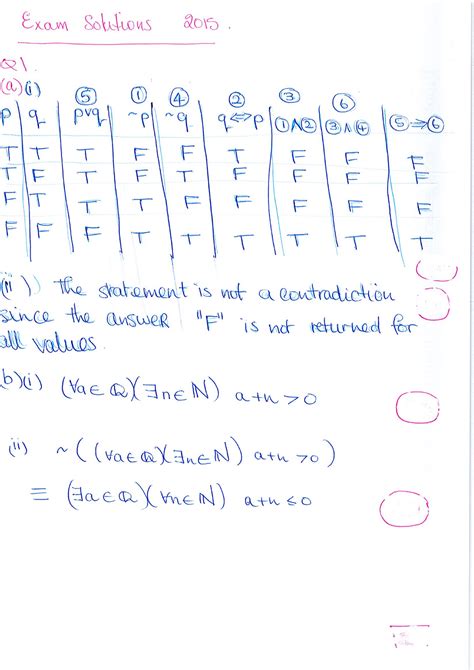 Exam Solutions 2015.
Q1.
(a)(i)
⑤ ① ④ ② ③ ⑥
p q p∨q ~p ~q q⇔p ①∧② ③∧④ ⑤⇒⑥
T T T F F T F F F
T F T F T F F F F
F T T T F F F F F
F F F T T T T T T
(ii) The statement is not a contradiction
since the answer "F" is not returned for
all values.
b)(i) (∀a∈Q)(∃n∈N) a+n>0
(ii) ~((∀a∈Q)(∃n∈N) a+n>0)
≡ (∃a∈Q)(∀n∈N) a+n≤0